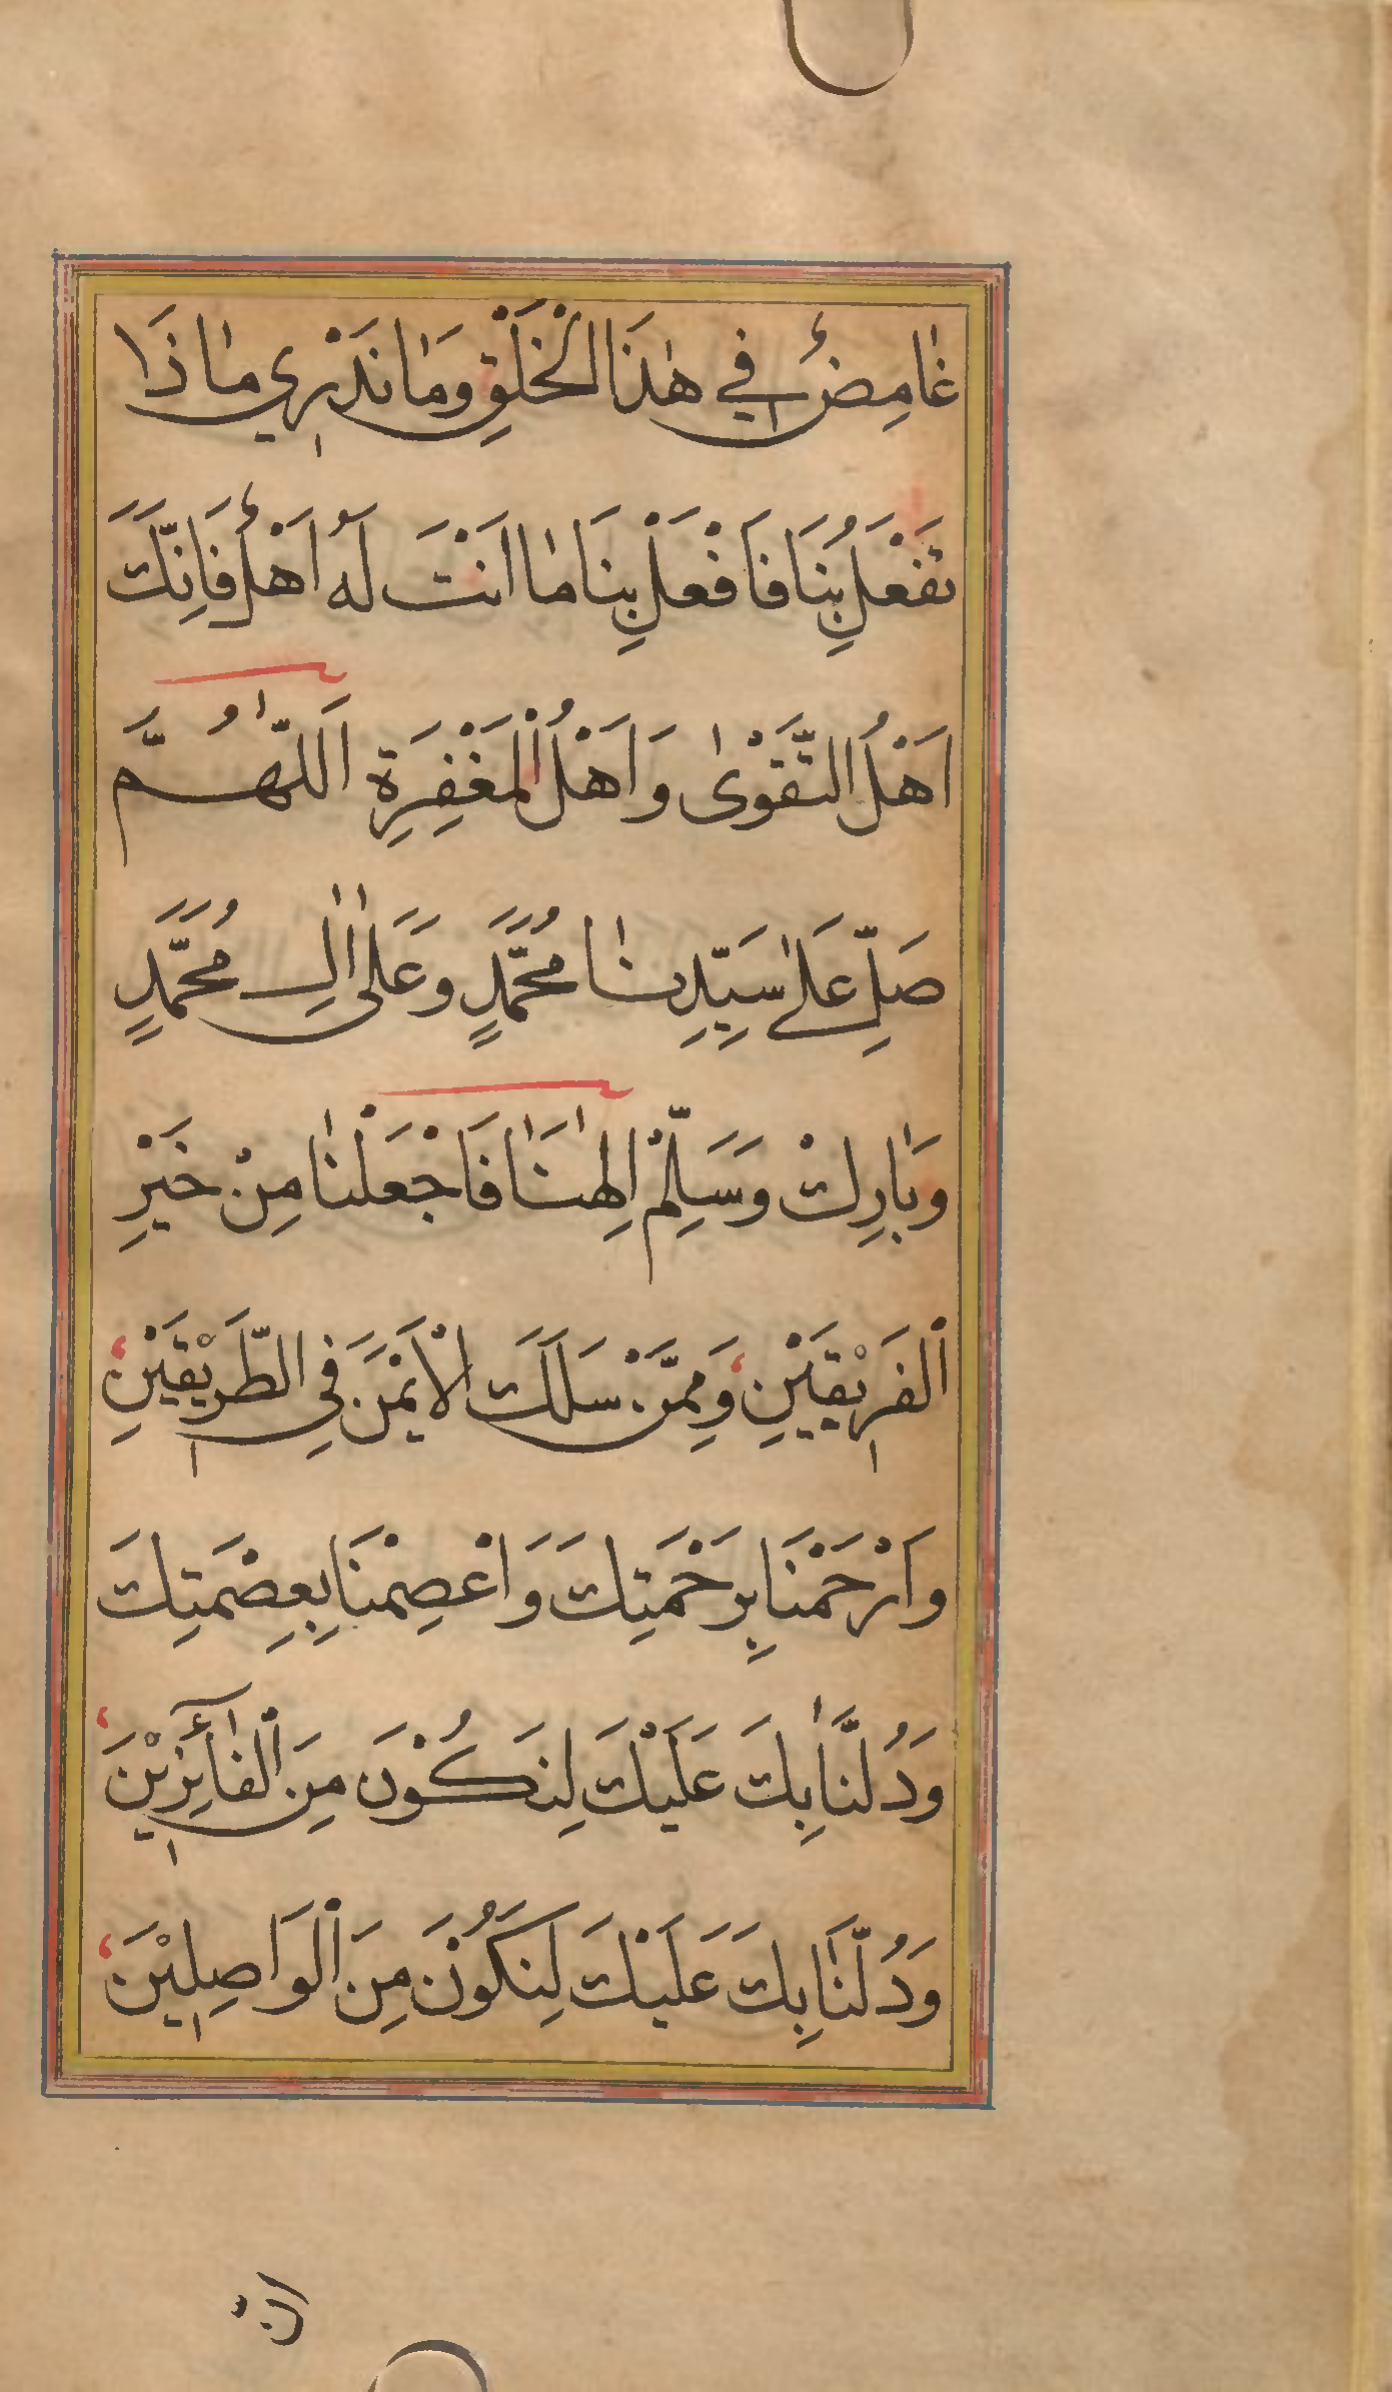 غَامِضٌ فِي هٰذَا الْخَلْقِ وَمَا نَدْرِي مَا ذَا
تَفْعَلُ بِنَا فَافْعَلْ بِنَا مَا اَنْتَ لَهُ اَهْلٌ فَاِنَّكَ
اَهْلُ التَّقْوٰى وَاَهْلُ الْمَغْفِرَةِ اَللّٰهُمَّ
صَلِّ عَلٰى سَيِّدِنَا مُحَمَّدٍ وَعَلٰى اٰلِ مُحَمَّدٍ
وَبَارِكْ وَسَلِّمْ اِلٰهَنَا فَاجْعَلْنَا مِنْ خَيْرِ
الْفَرِيْقَيْنِ وَمِمَّنْ سَلَكَ الْاَيْمَنَ فِي الطَّرِيْقَيْنِ
وَارْحَمْنَا بِرَحْمَتِكَ وَاعْصِمْنَا بِعِصْمَتِكَ
وَدُلَّنَا بِكَ عَلَيْكَ لِنَكُوْنَ مِنَ الْفَآئِزِيْنَ
وَدُلَّنَا بِكَ عَلَيْكَ لِنَكُوْنَ مِنَ الْوَاصِلِيْنَ